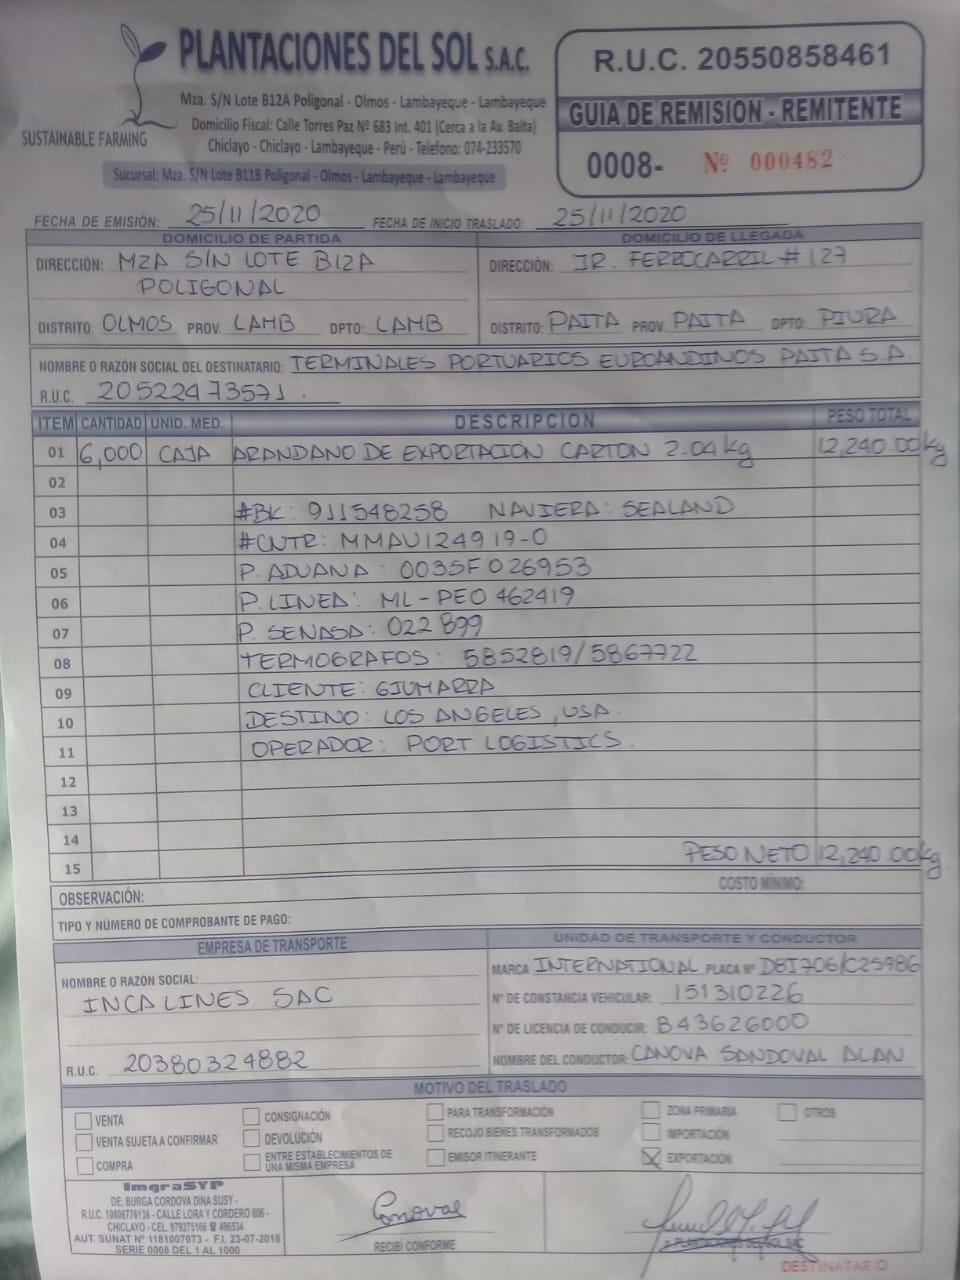 PLANTACIONES DEL SOL S.A.C.
SUSTAINABLE FARMING
Mza. S/N Lote B12A Poligonal - Olmos - Lambayeque - Lambayeque
Domicilio Fiscal: Calle Torres Paz Nº 683 Int. 401 (Cerca a la Av. Balta)
Chiclayo - Chiclayo - Lambayeque - Perú - Telefono: 074-233570
Sucursal: Mza. S/N Lote B11B Poligonal - Olmos - Lambayeque - Lambayeque
R.U.C. 20550858461
GUIA DE REMISION - REMITENTE
0008- Nº 000482
FECHA DE EMISIÓN: 25/11/2020 FECHA DE INICIO TRASLADO: 25/11/2020
DOMICILIO DE PARTIDA
DIRECCIÓN: MZA S/N LOTE B12A
POLIGONAL
DISTRITO: OLMOS PROV. LAMB DPTO: LAMB
DOMICILIO DE LLEGADA
DIRECCIÓN: JR. FERROCARRIL # 127
DISTRITO: PAITA PROV. PAITA DPTO: PIURA
NOMBRE O RAZÓN SOCIAL DEL DESTINATARIO: TERMINALES PORTUARIOS EUROANDINOS PAITA S.A.
R.U.C. 20522473571.
ITEM CANTIDAD UNID. MED. DESCRIPCION PESO TOTAL
01 6,000 CAJA ARANDANO DE EXPORTACIÓN CARTON 2.04 kg 12,240.00 kg
02
03 #BK: 911548258 NAVIERA: SEALAND
04 #CNTR: MMAU124919-0
05 P. ADUANA: 0035F026953
06 P. LINEA: ML-PE0462419
07 P. SENASA: 022899
08 TERMOGRAFOS: 5852819/5867722
09 CLIENTE: GIUMARRA
10 DESTINO: LOS ANGELES, USA.
11 OPERADOR: PORT LOGISTICS.
12
13
14
15 PESO NETO 12,240.00 kg
COSTO MÍNIMO:
OBSERVACIÓN:
TIPO Y NÚMERO DE COMPROBANTE DE PAGO:
EMPRESA DE TRANSPORTE
NOMBRE O RAZÓN SOCIAL:
INCA LINES SAC
R.U.C. 20380324882
UNIDAD DE TRANSPORTE Y CONDUCTOR
MARCA INTERNATIONAL PLACA Nº D8I706/C2S986
N° DE CONSTANCIA VEHICULAR: 151310226
N° DE LICENCIA DE CONDUCIR: B43626000
NOMBRE DEL CONDUCTOR: CANOVA SANDOVAL ALAN
MOTIVO DEL TRASLADO
VENTA CONSIGNACIÓN PARA TRANSFORMACIÓN ZONA PRIMARIA OTROS
VENTA SUJETA A CONFIRMAR DEVOLUCIÓN RECOJO BIENES TRANSFORMADOS IMPORTACIÓN
COMPRA ENTRE ESTABLECIMIENTOS DE UNA MISMA EMPRESA EMISOR ITINERANTE EXPORTACIÓN
ImgraSYP
DE: BURGA CORDOVA DINA SUSY -
R.U.C. 10806776136 - CALLE LORA Y CORDERO 806 -
CHICLAYO - CEL. 979275166 ☎ 496534
AUT. SUNAT Nº 1181007073 - F.I. 23-07-2018
SERIE 0008 DEL 1 AL 1000
Canovas
RECIBÍ CONFORME
p. PLANTACIONES DEL SOL SAC
DESTINATARIO